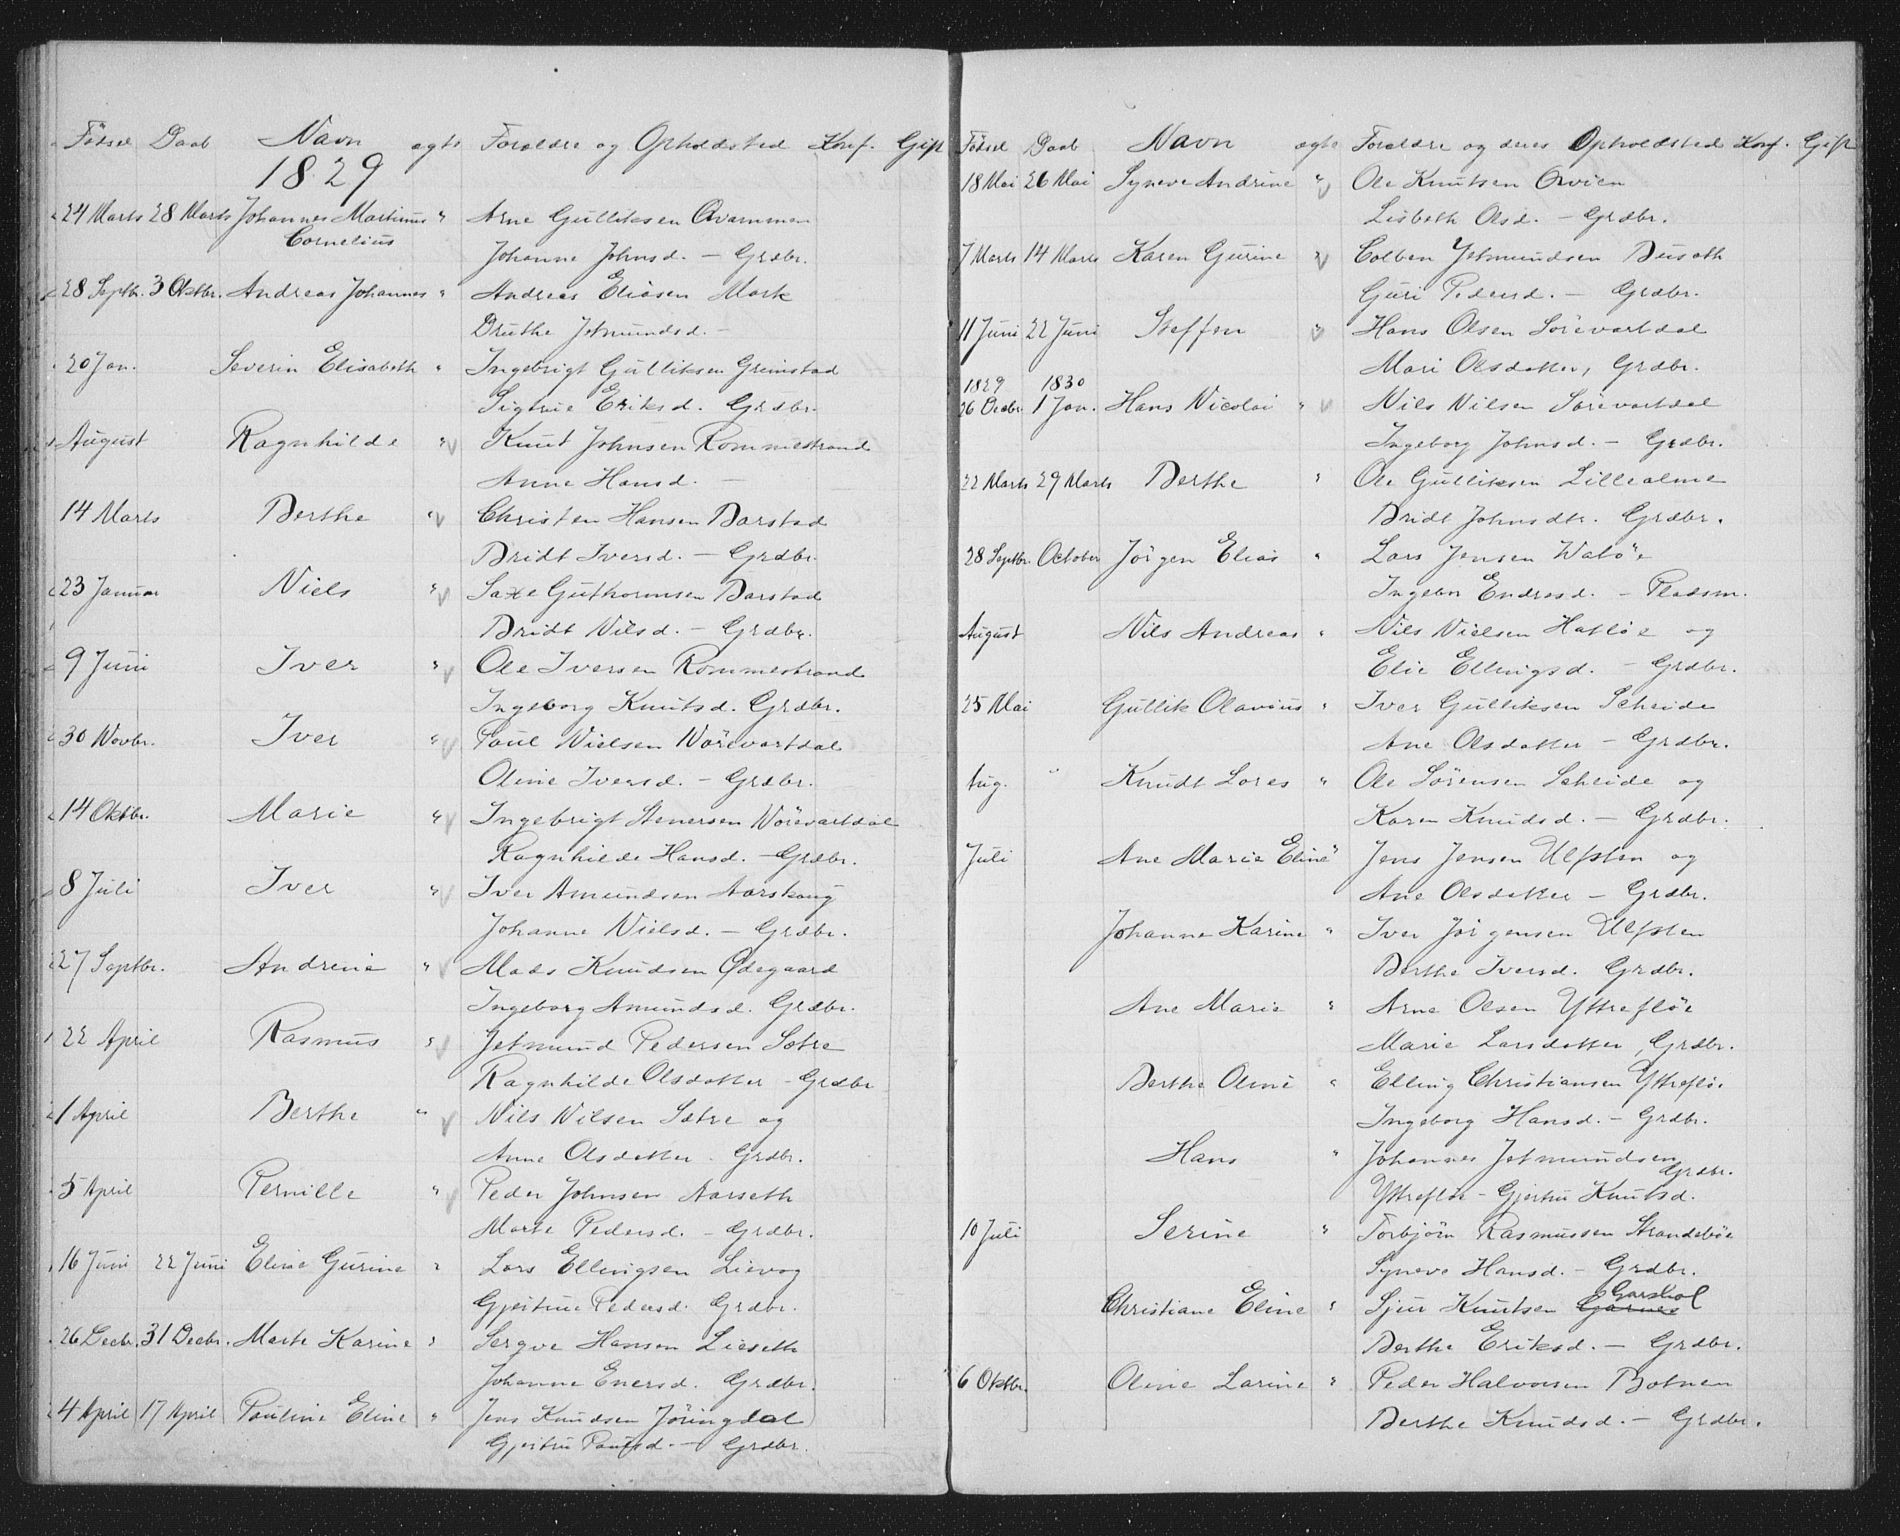 Födsel Daab Navn ægte Forældre og Opholdsted Konf. Gift
1829
24 Marts 28 Marts Johannes Martinus " Arne Gulliksen Qvammen
Cornelius Johanne Johnsd. — Grdbr.
28 Septbr. 3 Oktbr. Andreas Johannes " Andreas Eliasen Mork
Bruthe Jetmundsd. —
20 Jan. Severin Elisabeth " Ingebrigt Gulliksen Grimstad
Sigrie Eriksd. Grdbr.
August Ragnhilde " Knut Johnsen Rommestrand
Anne Hansd. —
14 Marts Berthe " Christen Hansen Barstad
Bridt Iversd. — Grdbr.
23 Januar Niels " Saxe Guthormsen Barstad
Bridt Nilsd. — Grdbr.
9 Juni Iver " Ole Iversen Rommestrand
Ingeborg Knutsd. Grdbr.
30 Novbr. Iver " Poul Nielsen Nörevartdal
Oline Iversd. — Grdbr.
14 Oktbr. Marie " Ingebrigt Stenersen Nörevartdal
Ragnhilde Hansd. — Grdbr.
8 Juli Iver " Iver Amundsen Aarskoug
Johanne Nielsd. — Grdbr.
27 Septbr. Andrine " Mads Knudsen Ødegaard
Ingeborg Amundsd. Grdbr.
22 April Rasmus " Jetmund Pedersen Sætre
Ragnhilde Olsdatter — Grdbr
1 April Berthe " Nils Nilsen Sætre og
Anne Olsdatter Grdbr.
5 April Pernille " Peder Johnsen Aarseth
Marte Pedersd. — Grdbr.
16 Juni 22 Juni Eline Gurine " Lars Ellingsen Lievog
Gjertrue Pedersd. Grdbr.
26 Decbr. 31 Decbr. Marte Karine " Sergve Hansen Lieseth
Johanne Enersd. Grdbr.
4 April 17 April Pauline Eline " Jens Knudsen Jöringdal
Gjertru Paulsd. — Grdbr.
Födsel Daab Navn ægte Forældre og deres Opholdsted Konf. Gift
18 Mai 26 Mai Syneve Andrine " Ole Knutsen Orvien
Lisbeth Olsd. — Grdbr.
7 Marts 14 Marts Karen Gurine " Colben Jetmundsen Buseth
Guri Pedersd. — Grdbr.
11 Juni 22 Juni Steffen " Hans Olsen Sörevartdal
Mari Olsdatter, Grdbr.
1829 1830
26 Decbr. 1 Jan. Hans Nicolai " Nils Nilsen Sörevartdal
Ingeborg Johnsd. — Grdbr.
22 Marts 29 Marts Berthe " Ole Gulliksen Lillealme
Bridt Johnsdtr. Grdbr.
28 Septbr. October Jörgen Elias " Lars Jensen Watöe
Ingebor Endresd. — Pladsm.
August Nils Andreas " Nils Nielsen Hatlöe og
Elie Ellingsd. — Grdbr.
25 Mai Gullik Olavius " Iver Gulliksen Scheide
Ane Olsdatter — Grdbr.
Aug. " Knudt Lores " Ole Sörensen Scheide og
Karen Knudsd. — Grdbr.
Juli Ane Marie Eline " Jens Jensen Ulfsten og
Ane Olsdatter — Grdbr.
Johanne Karine " Iver Jörgensen Ulfsten
Berthe Iversd. Grdbr.
Ane Marie " Arne Olsen Yttreflöe
Marie Larsdatter, Grdbr.
Berthe Oline " Elling Christiansen Yttreflöe
Ingeborg Hansd. — Grdbr.
Hans " Johannes Jetmundsen
Grdbr.
Yttreflöe — Gjertru Knutsd.
10 Juli Serine " Torbjörn Rasmussen Strandeböe
Syneve Hansd. — Grdbr.
Garshol
Christiane Eline " Sjur Knutsen Garnes
Berthe Eriksd. — Grdbr.
6 Oktbr. Oline Larine " Peder Halvorsen Botnen
Berthe Knudsd. — Grdbr.